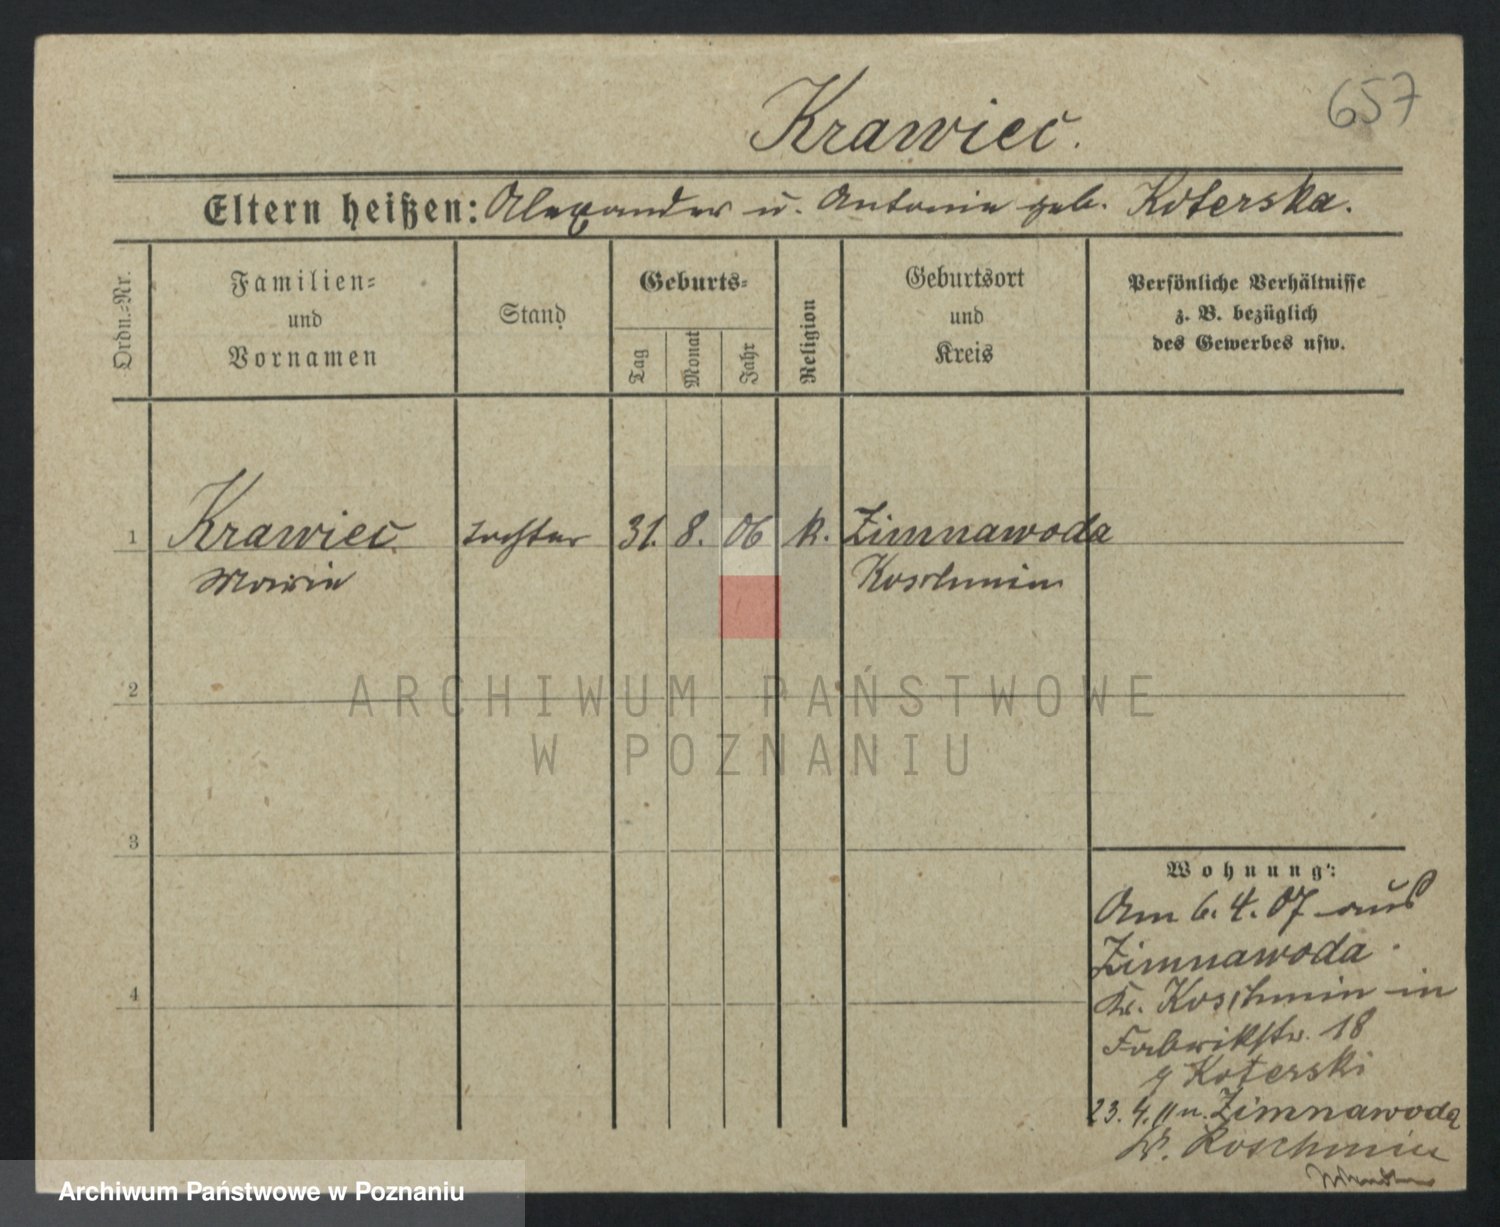 657
Krawiec.
Eltern heißen: Alexander u. Antonie geb. Koterska.
Ordn.-Nr.
Familien-
und
Vornamen
Stand
Geburts-
Tag
Monat
Jahr
Religion
Geburtsort
und
Kreis
Persönliche Verhältnisse
z. B. bezüglich
des Gewerbes usw.
1 Krawiec Tochter 31. 8. 06 k. Zimnawoda
Marie Koschmin
2
ARCHIWUM PAŃSTWOWE
W POZNANIU
3
Wohnung:
Am 6. 4. 07 aus
Zimnawoda
Kr. Koschmin in
Fabrikstr. 18
Koterski
4
23. 4. 11 n. Zimnawoda
Kr. Koschmin
Archiwum Państwowe w Poznaniu